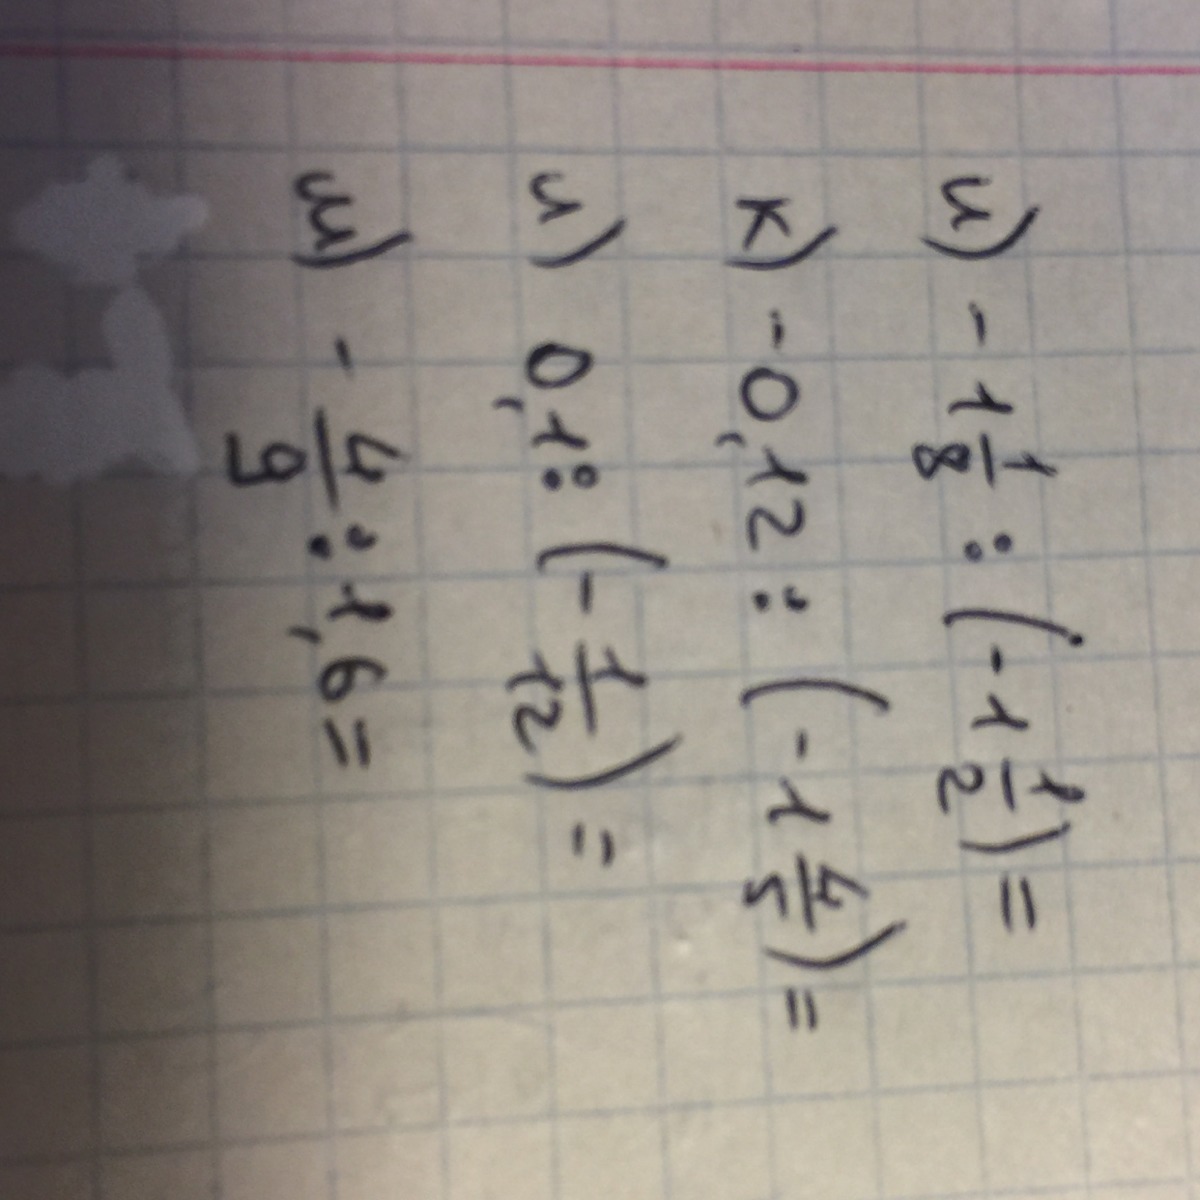 и) -1 1/8 : (-1 1/2) =
к) -0,12 : (-1 4/5) =
л) 0,1 : (-1/12) =
м) -4/9 : 1,6 =